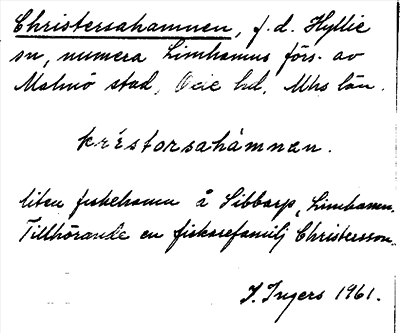 Christersahamnen, f.d. Hyllie
sn, numera Limhamns förs. av
Malmö stad, Oxie hd, Mhs län.
kréstorsahàmnan.
liten fiskehamn å Sibbarp, Limhamn.
Tillhörande en fiskarefamilj Christersson.
I. Ingers 1961.